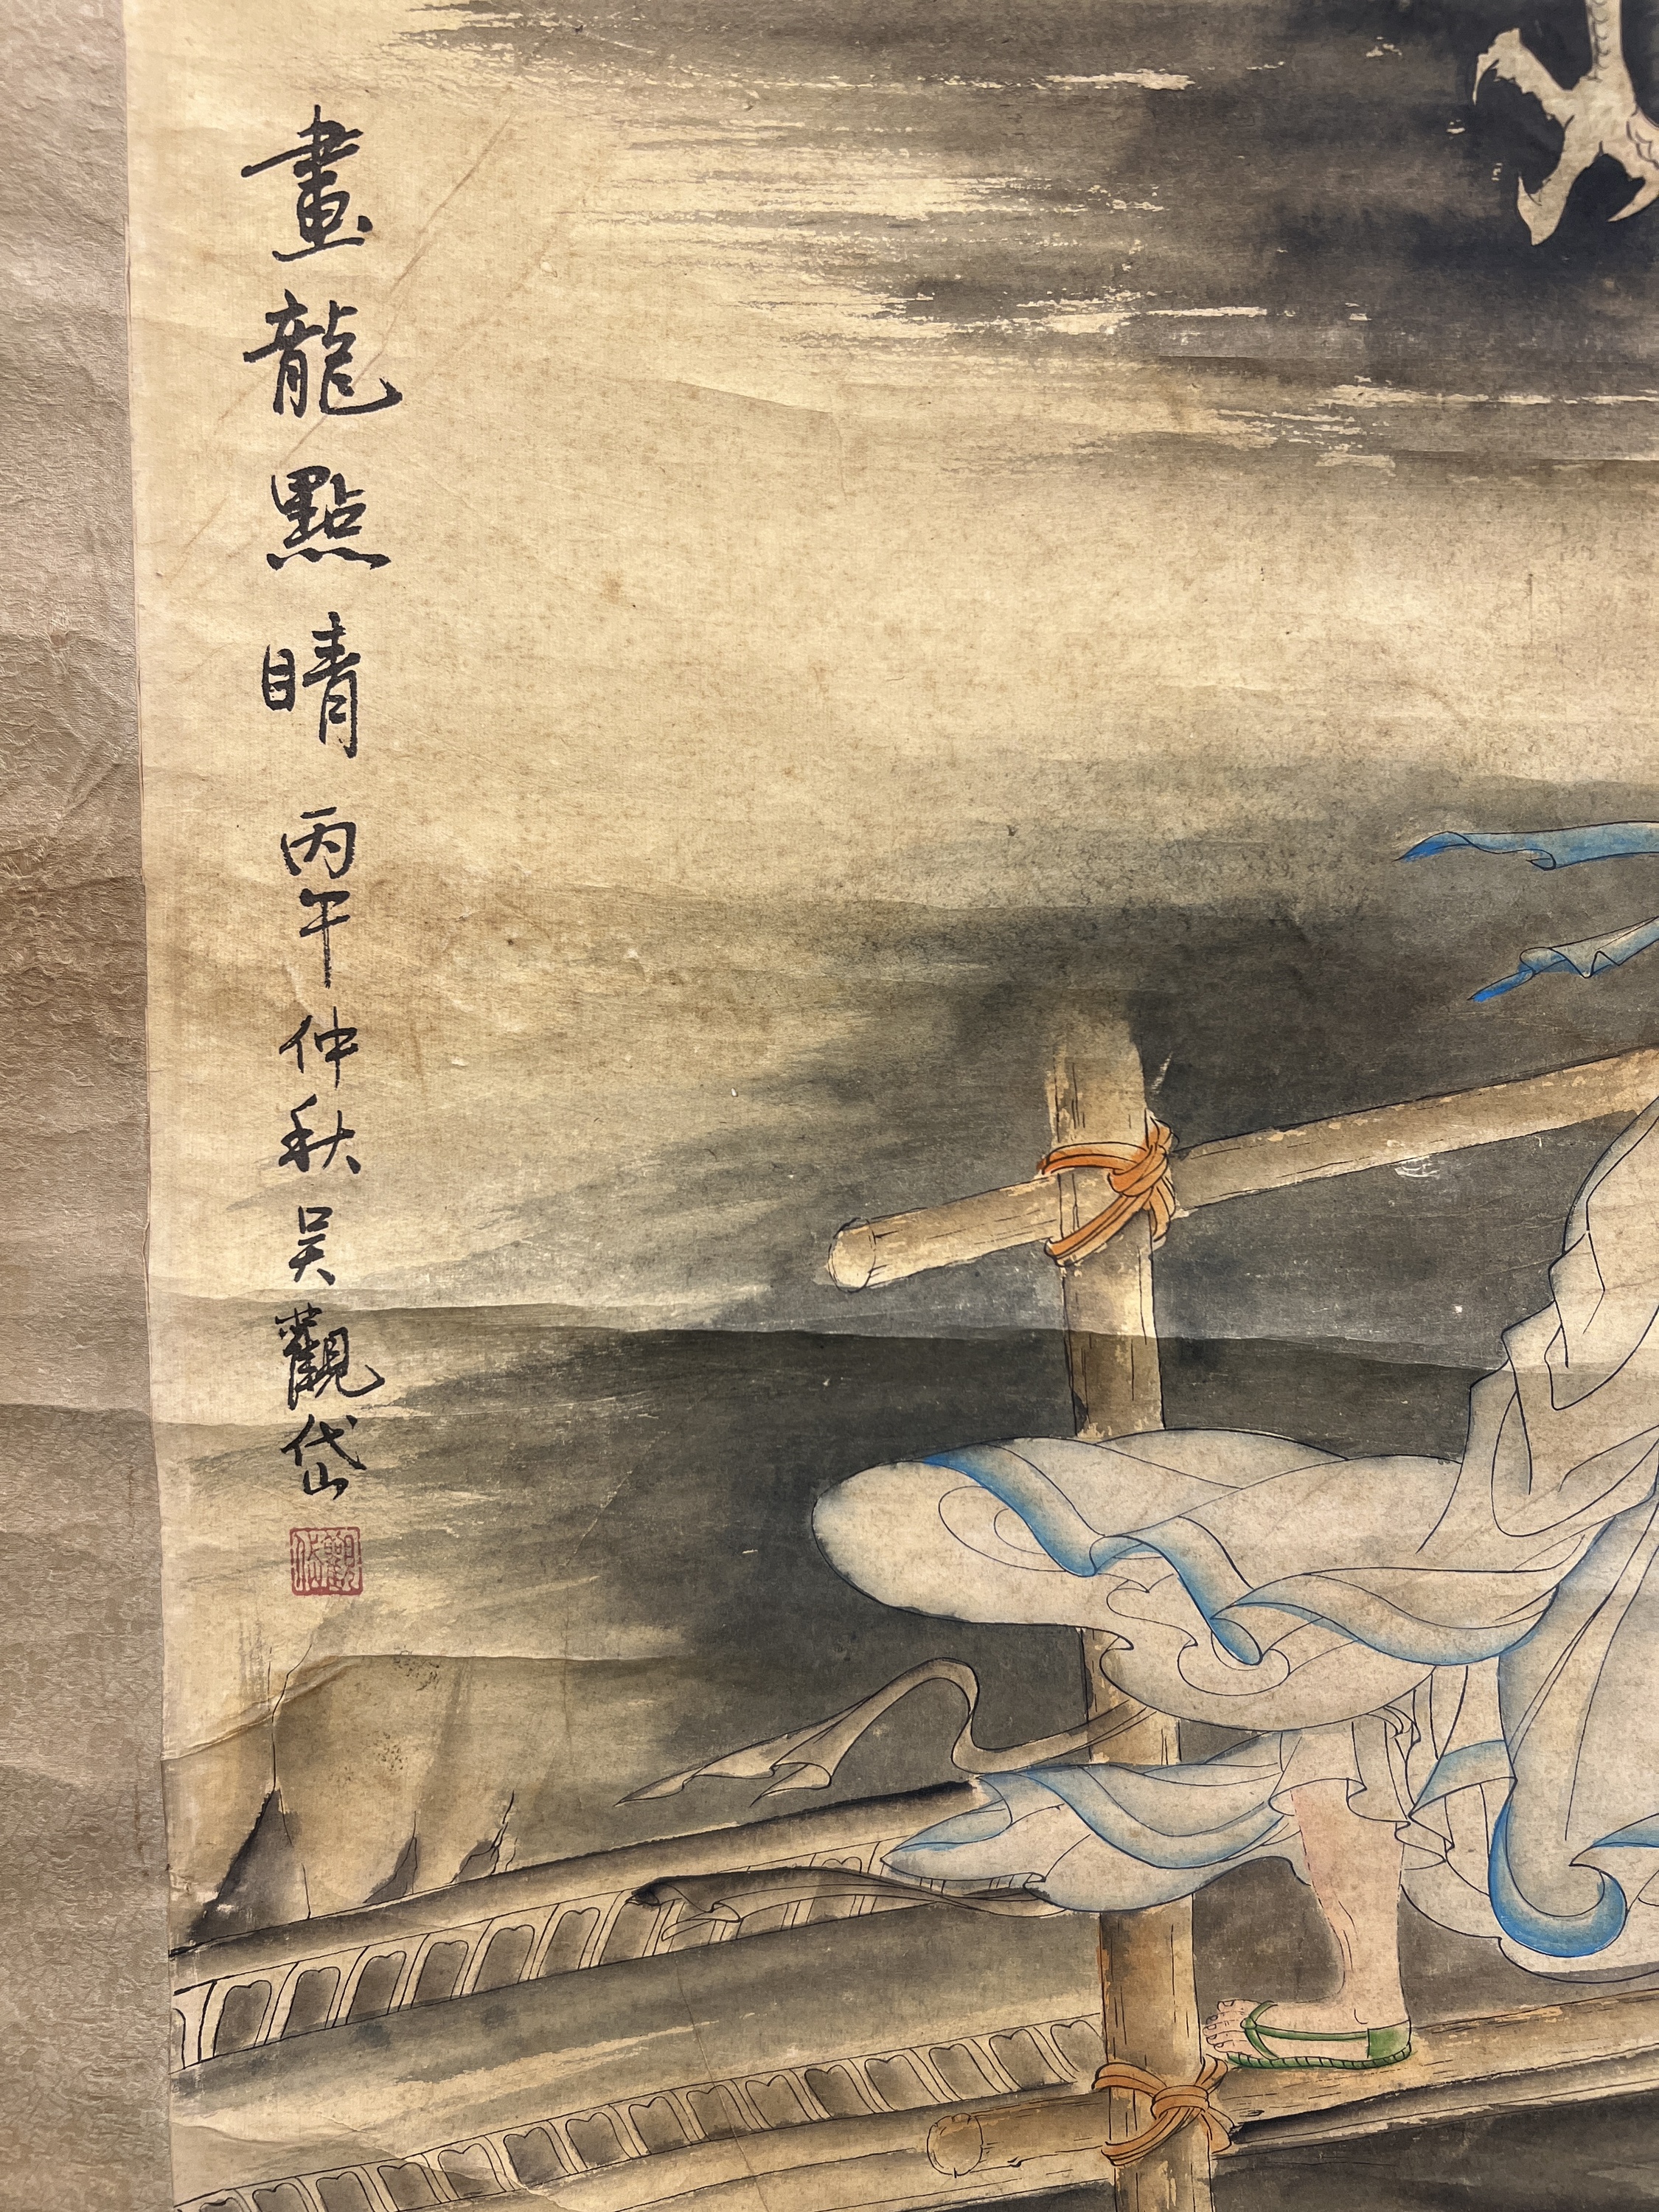 畫龍點睛 丙午仲秋 吴觀岱
觀岱